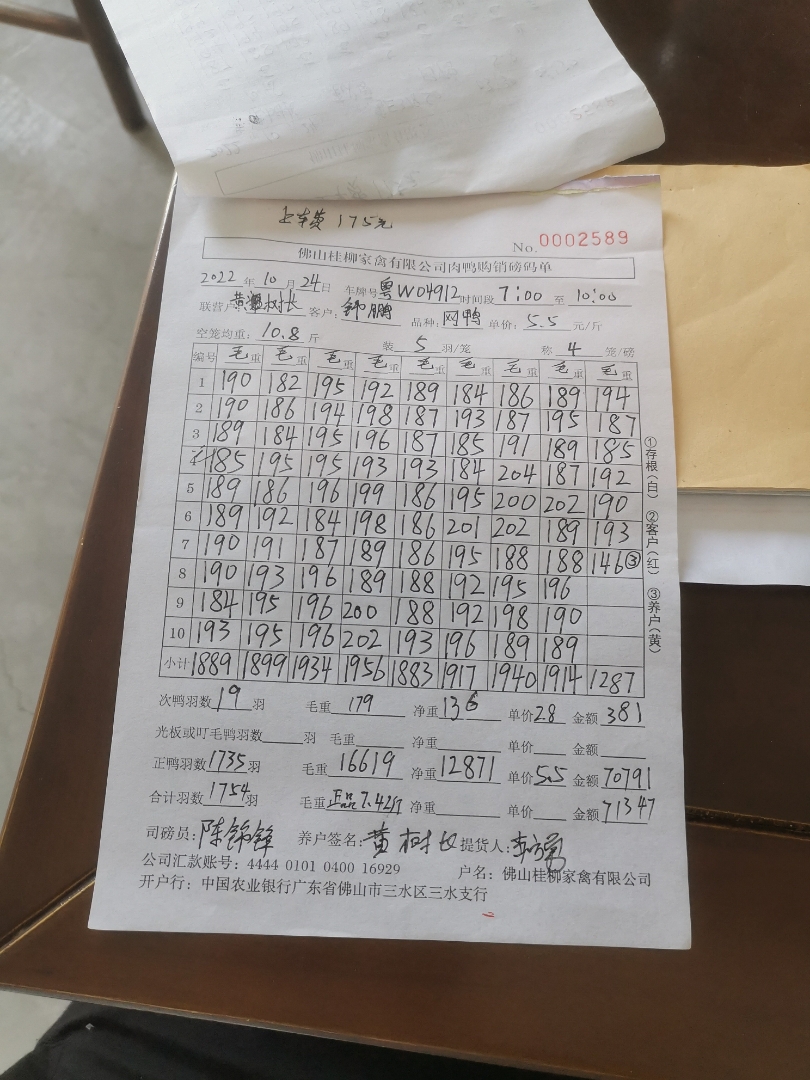 上车费 175元
No. 0002589
佛山桂柳家禽有限公司肉鸭购销磅码单
2022 年 10 月 24 日 车牌号 粤W04912 时间段 7:00 至 10:00
联营户: 黄树长 客户: 鹏 品种: 网鸭 单价: 5.5 元/斤
空笼均重: 10.8 斤 装 5 羽/笼 称 4 笼/磅
编号 毛重 毛重 毛重 毛重 毛重 毛重 毛重 毛重 毛重
1 190 182 195 192 189 184 186 189 194
2 190 186 194 198 187 193 187 195 187
3 189 184 195 196 187 185 191 189 185
4 185 195 195 193 193 184 204 187 192
5 189 186 196 199 186 195 200 202 190
6 189 192 184 198 186 201 202 189 193
7 190 191 187 189 186 195 188 188 146③
8 190 193 196 189 188 192 195 196
9 184 195 196 200 188 192 198 190
10 193 195 196 202 193 196 189 189
小计 1889 1899 1934 1956 1883 1917 1940 1914 1287
①存根(白) ②客户(红) ③养户(黄)
次鸭羽数 19 羽 毛重 179 净重 136 单价 2.8 金额 381
光板或叮毛鸭羽数 羽 毛重 净重 单价 金额
正鸭羽数 1735 羽 毛重 16619 净重 12871 单价 5.5 金额 70791
合计羽数 1754 羽 毛重 正品7.42斤 净重 单价 金额 71347
司磅员: 陈锦锋 养户签名: 黄树长 提货人: 李
公司汇款账号: 4444 0101 0400 16929 户名: 佛山桂柳家禽有限公司
开户行: 中国农业银行广东省佛山市三水区三水支行